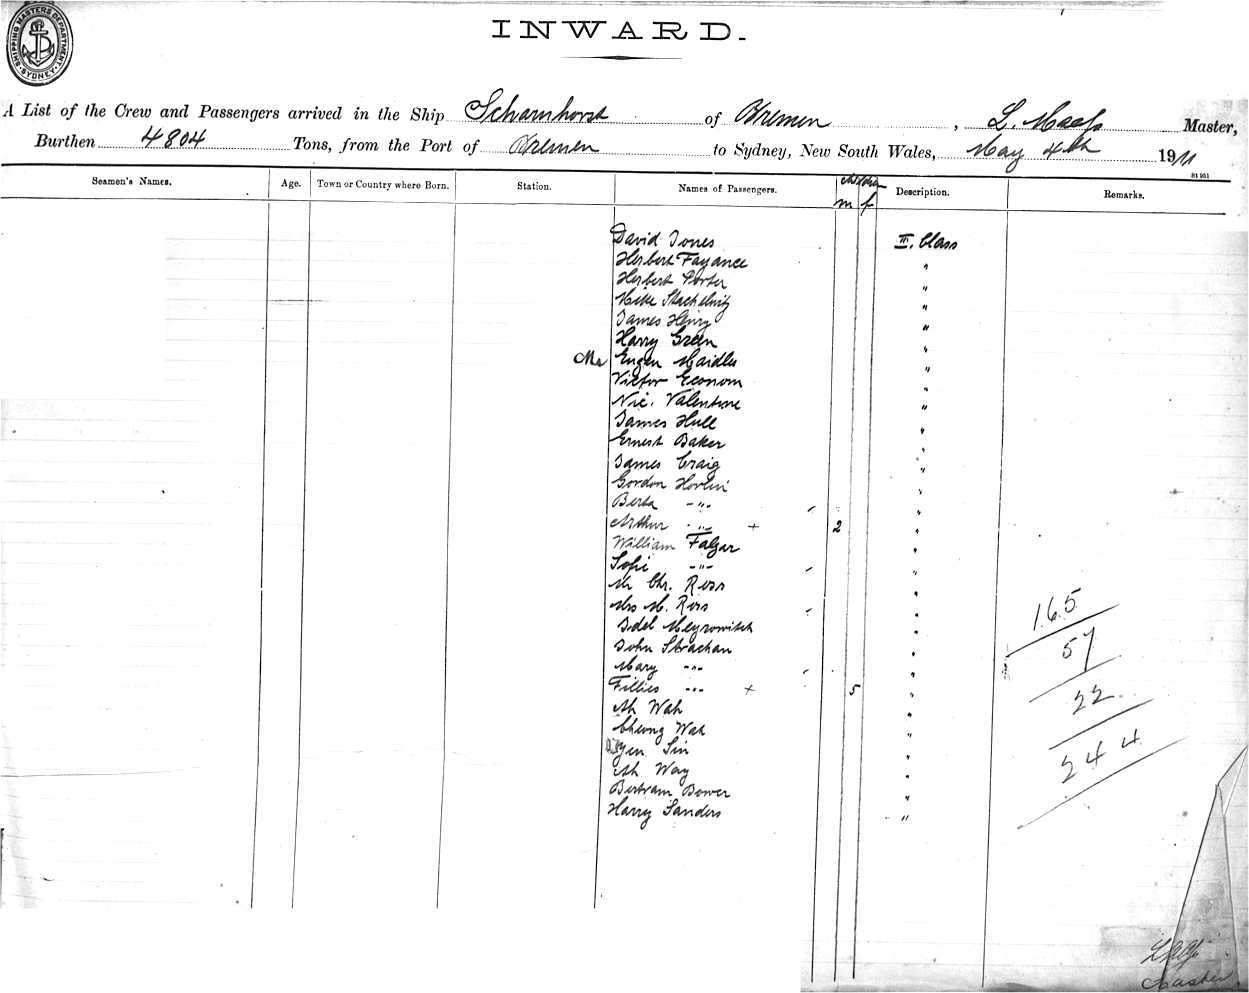 SHIPPING MASTERS DEPARTMENT. SYDNEY
INWARD.
A List of the Crew and Passengers arrived in the Ship Scharnhorst of Bremen, L. Maass Master,
Burthen 4804 Tons, from the Port of Bremen to Sydney, New South Wales, May 4th 1911
Seamen's Names. Age. Town or Country where Born. Station. Names of Passengers. Children m f Description. Remarks.
David Jones III. Class
Herbert Fayance "
Herbert Porter "
Mike Stachelwitz "
James Henry "
Harry Green "
Mr Eugen Haidler "
Victor Econom "
Nic. Valentine "
James Hull "
Ernest Baker "
James Craig "
Gordon Hovlin "
Berta -"- "
Arthur -"- + 2 "
William Falgar "
Sofie -"- "
Mr Chr. Ross "
Mrs M. Ross "
Meyrowitch "
John Strachan "
Mary -"- "
Fillies -"- + 5 "
Ah Wah "
Cheong Wah "
Yen Sin "
Ah Way "
Bertram Bower "
Harry Sanders "
165
57
22
244
Master